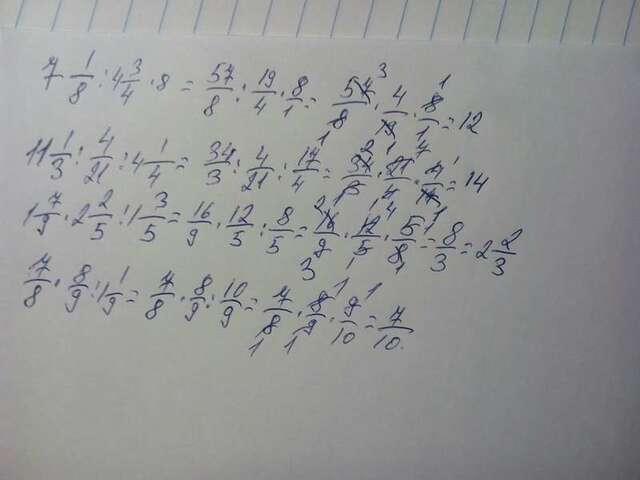 7 1/8 : 4 3/4 · 8 = 57/8 : 19/4 · 8/1 = 57/8 · 4/19 · 8/1 = 12
11 1/3 : 4/21 : 4 1/4 = 34/3 : 4/21 : 17/4 = 34/3 · 21/4 · 4/17 = 14
1 7/9 · 2 2/5 : 1 3/5 = 16/9 · 12/5 : 8/5 = 16/9 · 12/5 · 5/8 = 8/3 = 2 2/3
7/8 · 8/9 : 1 1/9 = 7/8 · 8/9 : 10/9 = 7/8 · 8/9 · 9/10 = 7/10.